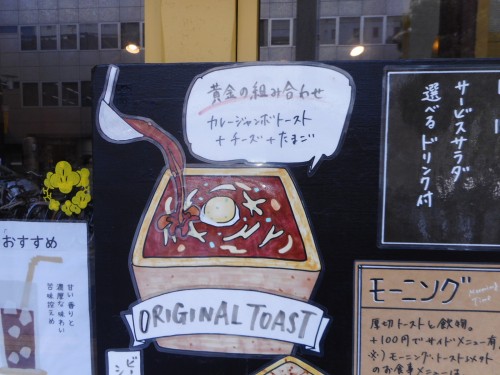 黄金の組み合わせ
カレージャンボトースト
+チーズ+たまご
ORIGINAL TOAST
サービスサラダ
選べるドリンク付
おすすめ
甘い香りと
濃厚な味わい
苦味控えめ
モーニング
厚切トーストと飲物。
+100円でサイドメニュー有
※)モーニングトーストとメット
のお食事メニューは